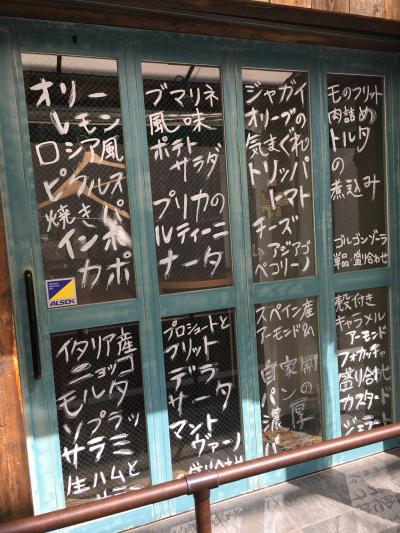 オリーブマリネ ジャガイモのフリット
レモン風味 オリーブの肉詰め
ロシア風ポテトサラダ 気まぐれトルタ
ピクルス トリッパの
焼きパプリカの トマト煮込み
インボルティーニ チーズ
カポナータ アジアゴ ゴルゴンゾーラ
ペコリーノ 単品・盛り合わせ
ALSOK
イタリア産 プロシュートと スペイン産 殻付き
ニョッコフリット アーモンド キャラメル
アーモンド
モルタデラ 自家製フォカッチャ
ソプラッサータ パンの盛り合せ
サラミ マントヴァーノ 濃厚カスタード
生ハムと ジェラート